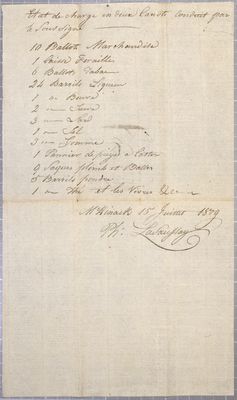 Etat de charge en deux Canots conduit par
le Sousigné
10 Ballots Marchandise
1 Caisse Feraille
6 Ballots Tabac
24 Barils Liqueur
1 " Beurre
2 " Sucre
3 " Lard
1 " Sel
3 " Gomme
1 Pannier de pieges à Castor
9 Saques plomb et Balles
5 Barils poudre
1 " Thé et les Vivres &c
McKinack 15 Juillet 1809
Ph: